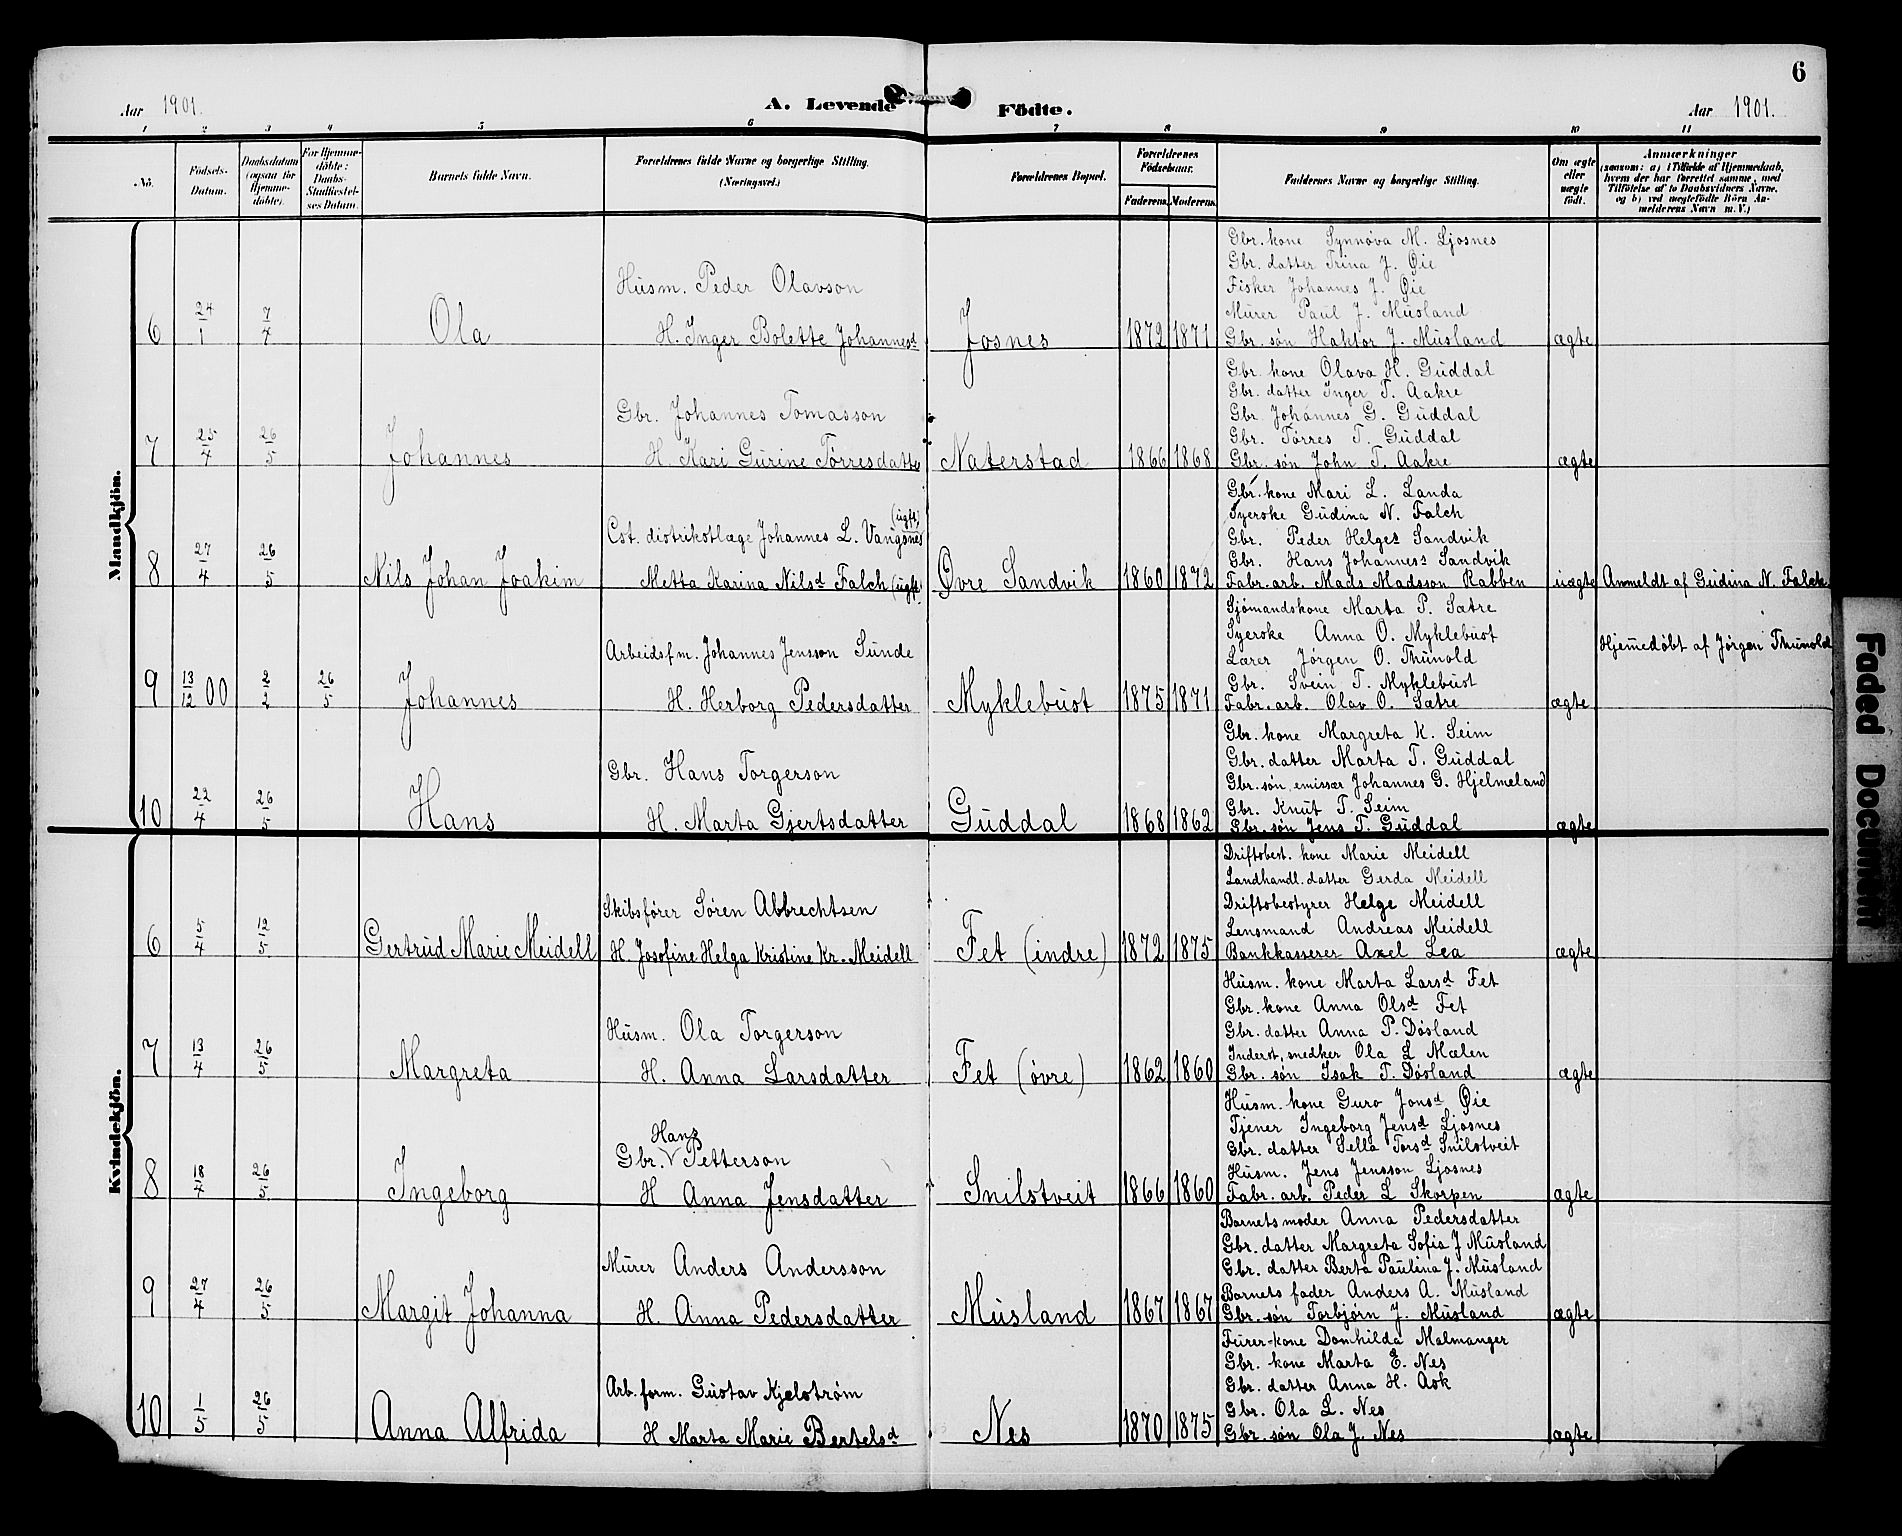 6
Aar 1901.
A. Levende Födte.
Aar 1901.
1 2 3 4 5 6 7 8 9 10 11
No.
Födsels-Datum.
Daabsdatum (ogsaa for Hjemmedöbte).
For Hjemmedöbte: Daabs-Stadfæstelses Datum.
Barnets fulde Navn.
Forældrenes fulde Navne og borgerlige Stilling.
(Næringsvei.)
Forældrenes Bopæl.
Forældrenes Födselsaar.
Faderens. Moderens.
Faddernes Navne og borgerlige Stilling.
Om ægte eller uægte födt.
Anmærkninger
(saasom: a) i Tilfælde af Hjemmedaab,
hvem der har forrettet samme, med
Tilföielse af to Daabsvidners Navne,
og b) ved uægtefödte Börn An-
melderens Navn m. V.)
Mandkjön.
Gbr. kone Synnøva M. Ljosnes
Gbr. datter Trina J. Øie
Husm. Peder Olavson
Fisker Johannes J. Øie
Murer Paul J. Musland
6 24/1 7/4 Ola H. Inger Bolette Johannesd Josnes 1872 1871 Gbr. søn Haktor J. Musland ægte
Gbr. kone Olava H. Guddal
Gbr. datter Inger T. Aakre
Gbr. Johannes Tomasson
Gbr. Johannes G. Guddal
Gbr. Tørres T. Guddal
7 25/4 26/5 Johannes H. Kari Gurine Tørresdatter Naterstad 1866 1868 Gbr. søn John T. Aakre ægte
Gbr. kone Mari L. Landa
Syerske Gudina N. Falch
(ugft)
Cst. distriktslæge Johannes L. Vangsnes
Gbr. Peder Helges Sandvik
Gbr. Hans Johanness Sandvik
8 27/4 26/5 Nils Johan Joakim Metta Karina Nilsd Falch (ugft) Øvre Sandvik 1860 1872 Fabr. arb. Mads Madsson Rabben uægte Anmeldt af Gudina N. Falch
Sjømandskone Marta P. Sætre
Syerske Anna O. Myklebust
Hjemedøbt af Jørgen Thunold
Arbeidsfm. Johannes Jensson Sunde
Lærer Jørgen O. Thunold
Gbr. Svein T. Myklebust
9 13/12 00 2/2 26/5 Johannes H. Herborg Pedersdatter Myklebust 1875 1871 Fabr. arb. Olav O. Sætre ægte
Gbr. kone Margreta K. Seim
Gbr. datter Marta T. Guddal
Gbr. Hans Torgerson
Gbr. søn, emissær Johannes G. Hjelmeland
Gbr. Knut T. Seim
10 22/4 26/5 Hans H. Marta Gjertsdatter Guddal 1868 1862 Gbr. søn Jens T. Guddal ægte
Kvindekjön.
Driftsbest. kone Marie Meidell
Landhandl. datter Gerda Meidell
Skibsfører Søren Abbrechtsen
Driftsbestyrer Helge Meidell
Lensmand Andreas Meidell
6 5/4 12/5 Gertrud Marie Meidell H. Josefine Helga Kristine Kr. Meidell Fet (indre) 1872 1875 Bankkasserer Axel Lea ægte
Husm. kone Marta Larsd Fet
Gbr. kone Anna Olsd Fet
Husm. Ola Torgerson
Gbr. datter Anna P. Døsland
Inderst, snedker Ola L. Mælen
7 13/4 26/5 Margreta H. Anna Larsdatter Fet (øvre) 1862 1860 Gbr. søn Isak T. Døsland ægte
Husm. kone Guro Jonsd Øie
Tjener Ingeborg Jensd Ljosnes
Hans
Gbr. Petterson
Gbr. datter Sella Torsd Snilstveit
Husm. Jens Jensson Ljosnes
8 18/4 26/5 Ingeborg H Anna Jensdatter Snilstveit 1866 1860 Fabr. arb. Peder L Skorpen ægte
Barnets moder Anna Pedersdatter
Gbr. datter Margreta Sofia J Musland
Murer Anders Andersson
Gbr. datter Berta Paulina J. Musland
Barnets fader Anders A. Musland
9 27/4 26/5 Margit Johanna H. Anna Pedersdatter Musland 1867 1867 Gbr. søn Torbjørn J. Musland ægte
Furer-kone Domhilda Malmanger
Gbr. kone Marta E. Nes
Arb. form. Gustav Kjelstrøm
Gbr. datter Anna H. Ask
Gbr. Ola L. Nes
10 1/5 26/5 Anna Alfrida H Marta Marie Bertelsd Nes 1870 1875 Gbr. søn Ola J. Nes ægte
Faded Document